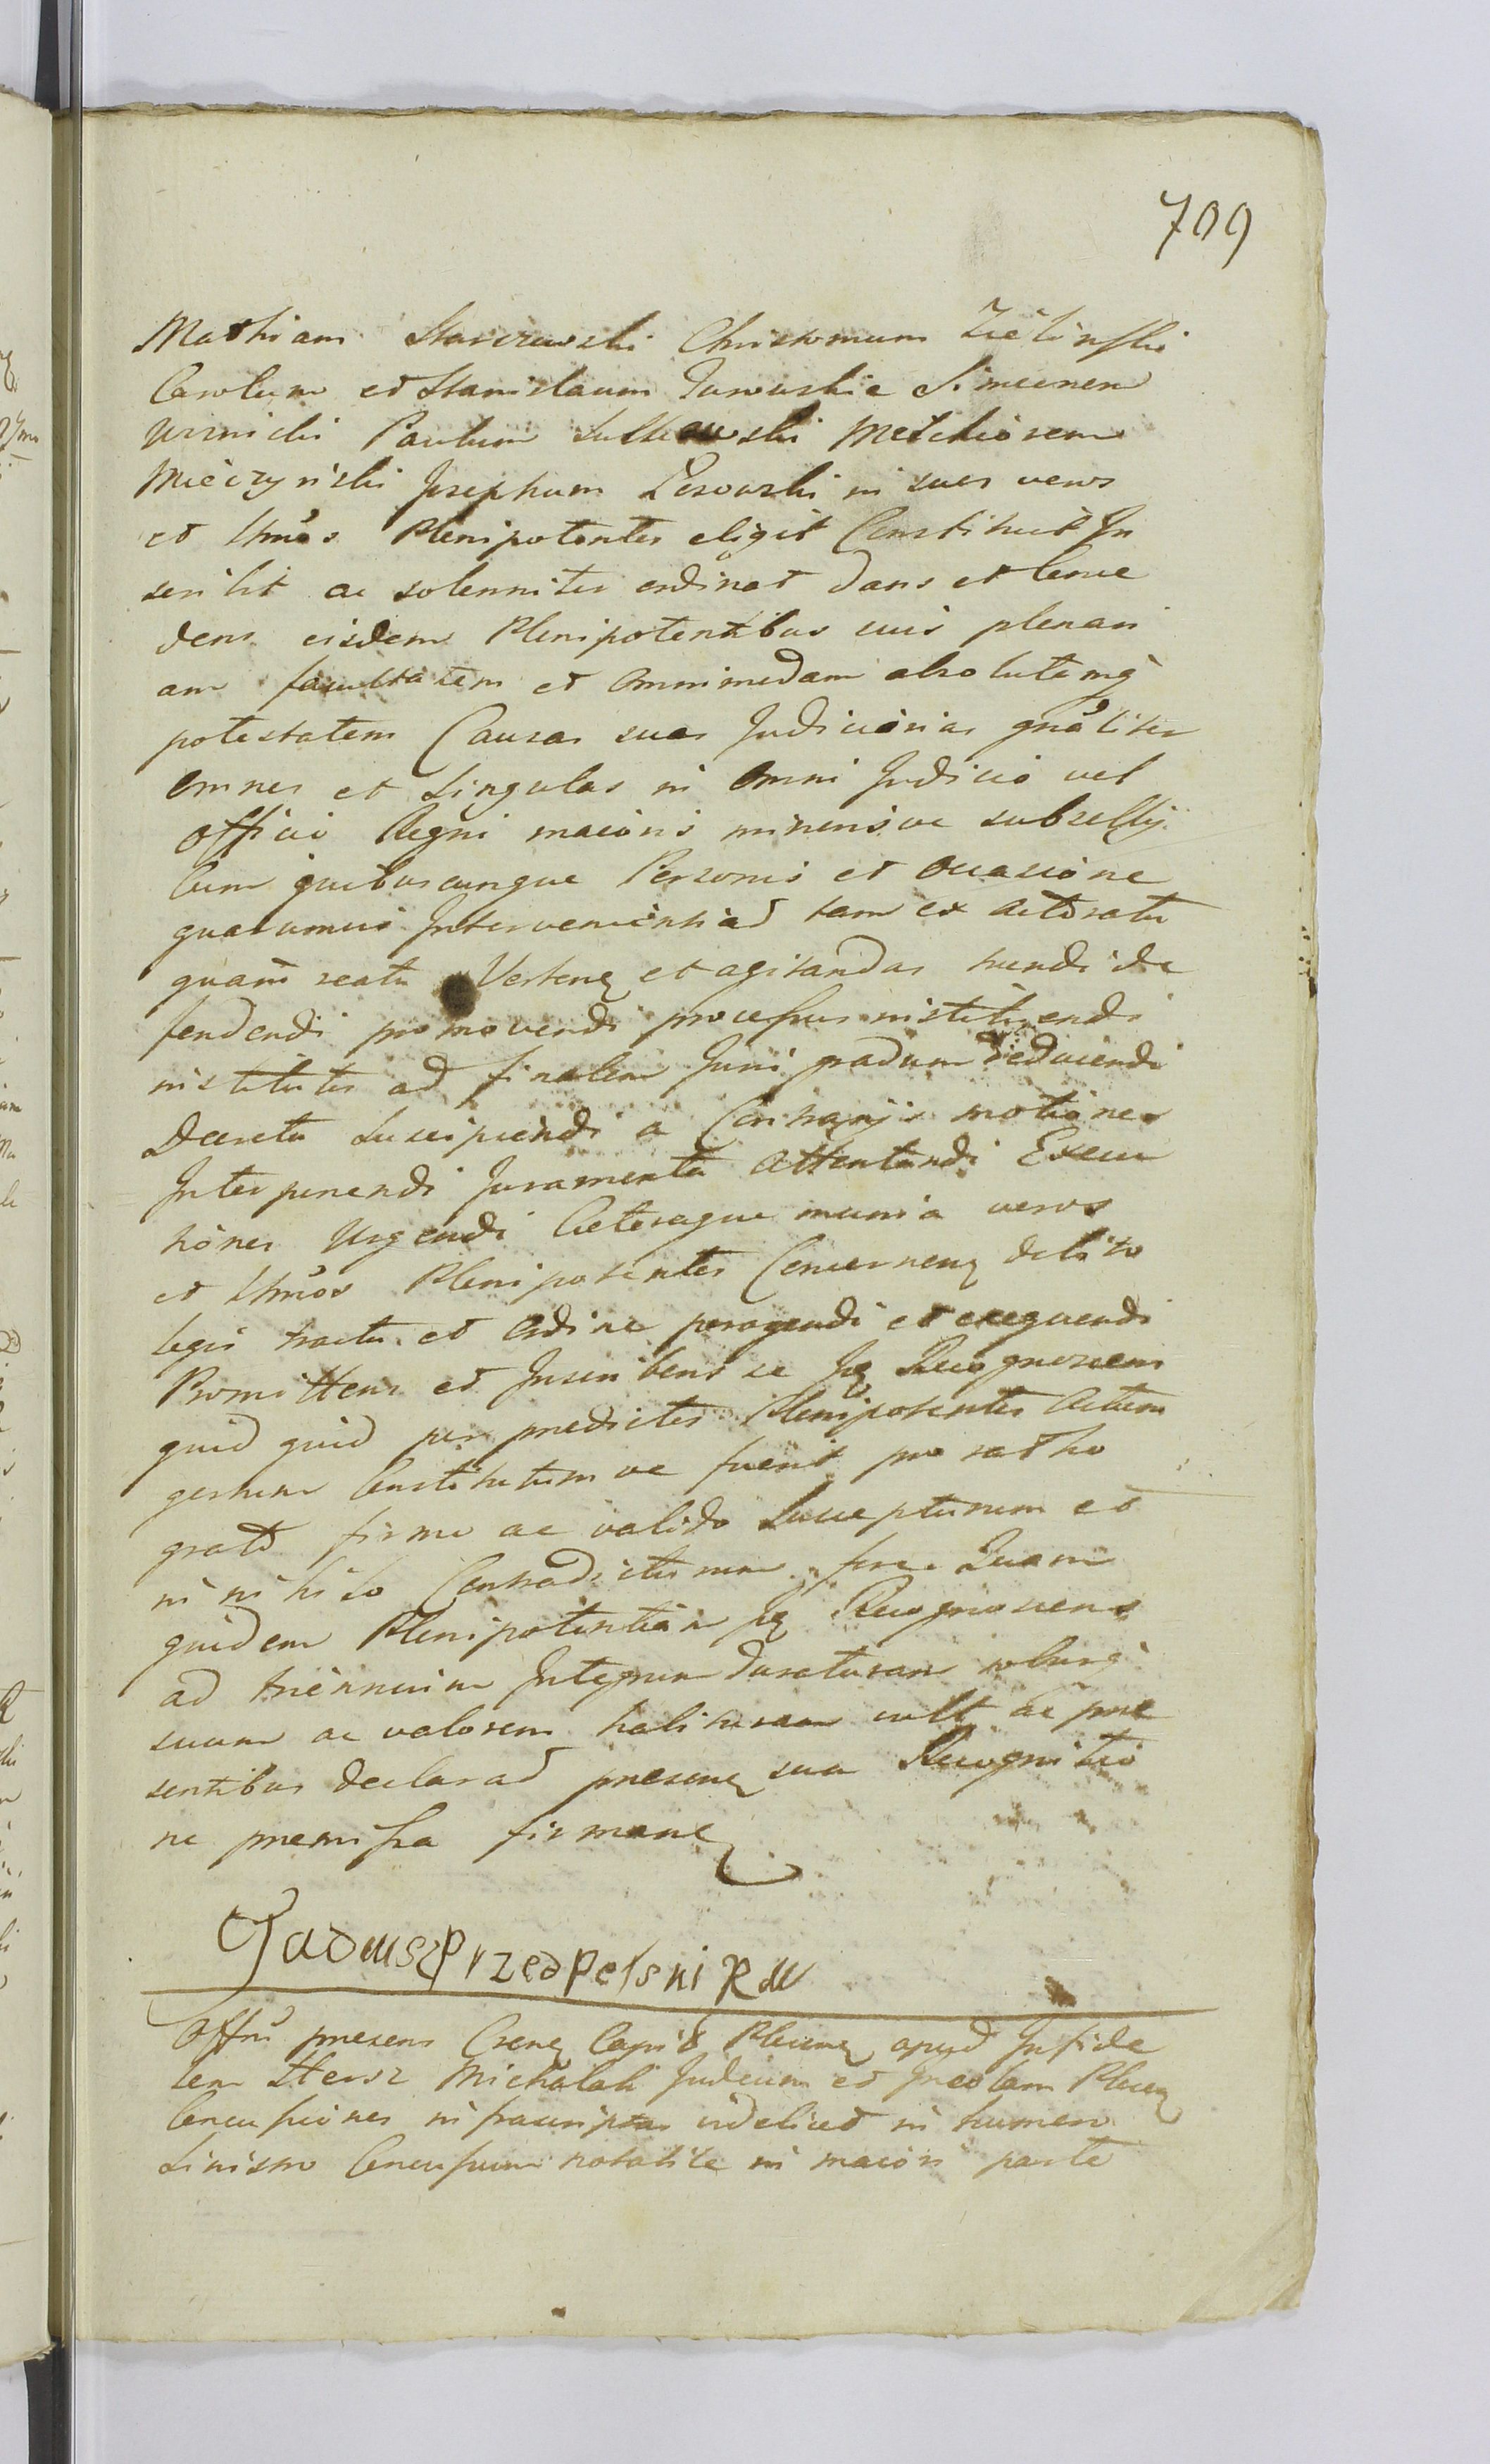 709
Mathiam Starczewski Chrisostomum Zielinski
Carolum et Stanislaum Jaroczskie Simeonem
Winnicki Paulum Sulkowski Melchiorem
Mieczynski Josephum Possowski in suos veros
et lttmos Plenipotentes eligit Constituit In
scribit ac solenniter ordinat dans et conce
dens eisdem Plenipotentibus suis plenari
am facultatem et omnimodam absolutamq
potestatem Causas suas Judiciarias gnaliter
omnes et singulas in omni Judicio vel
officio Regni maioris minorisve subsellij
Cum quibuscunque Personis et occasione
quarumvis Intervenientiad tam ex actoratu
quam reatu Verten et agitandas tuendi de
fendendi promovendi processus instituendi
institutos ad finalem Juris gradum deducendi
Decreta suscipiendi a Contrarijs motiones
Interponendi Juramenta attentandi Execu
tiones Urgendi Caeteraque munia veros
et lttmos Plenipotentes Concernen debito
legis tractu et ordine peragendi et exequendi
Promittens et Inscribens se Recognoscens
quid quid per predictos Plenipotentes actum
gestum Constitutum ve fuerit pro ratho
grato firmo ac valido suscepturum et
in nihilo Contradicturum fore Quam
quidem Plenipotentiam Recognoscens
ad triennium Integrum duraturam roburq
suum ac valorem habituram vult ac prae
sentibus declarad presen sua Recognitio
ne premissa firman
Tadeusz Przedpelski R M
Offm presens Cren Capit Plocen apud Infide
lem Hersz Michalak Judeum et Incolam Plocen
Concussiones infrascriptas videliced in humero
sinistro Concussium notabile in maiori parte